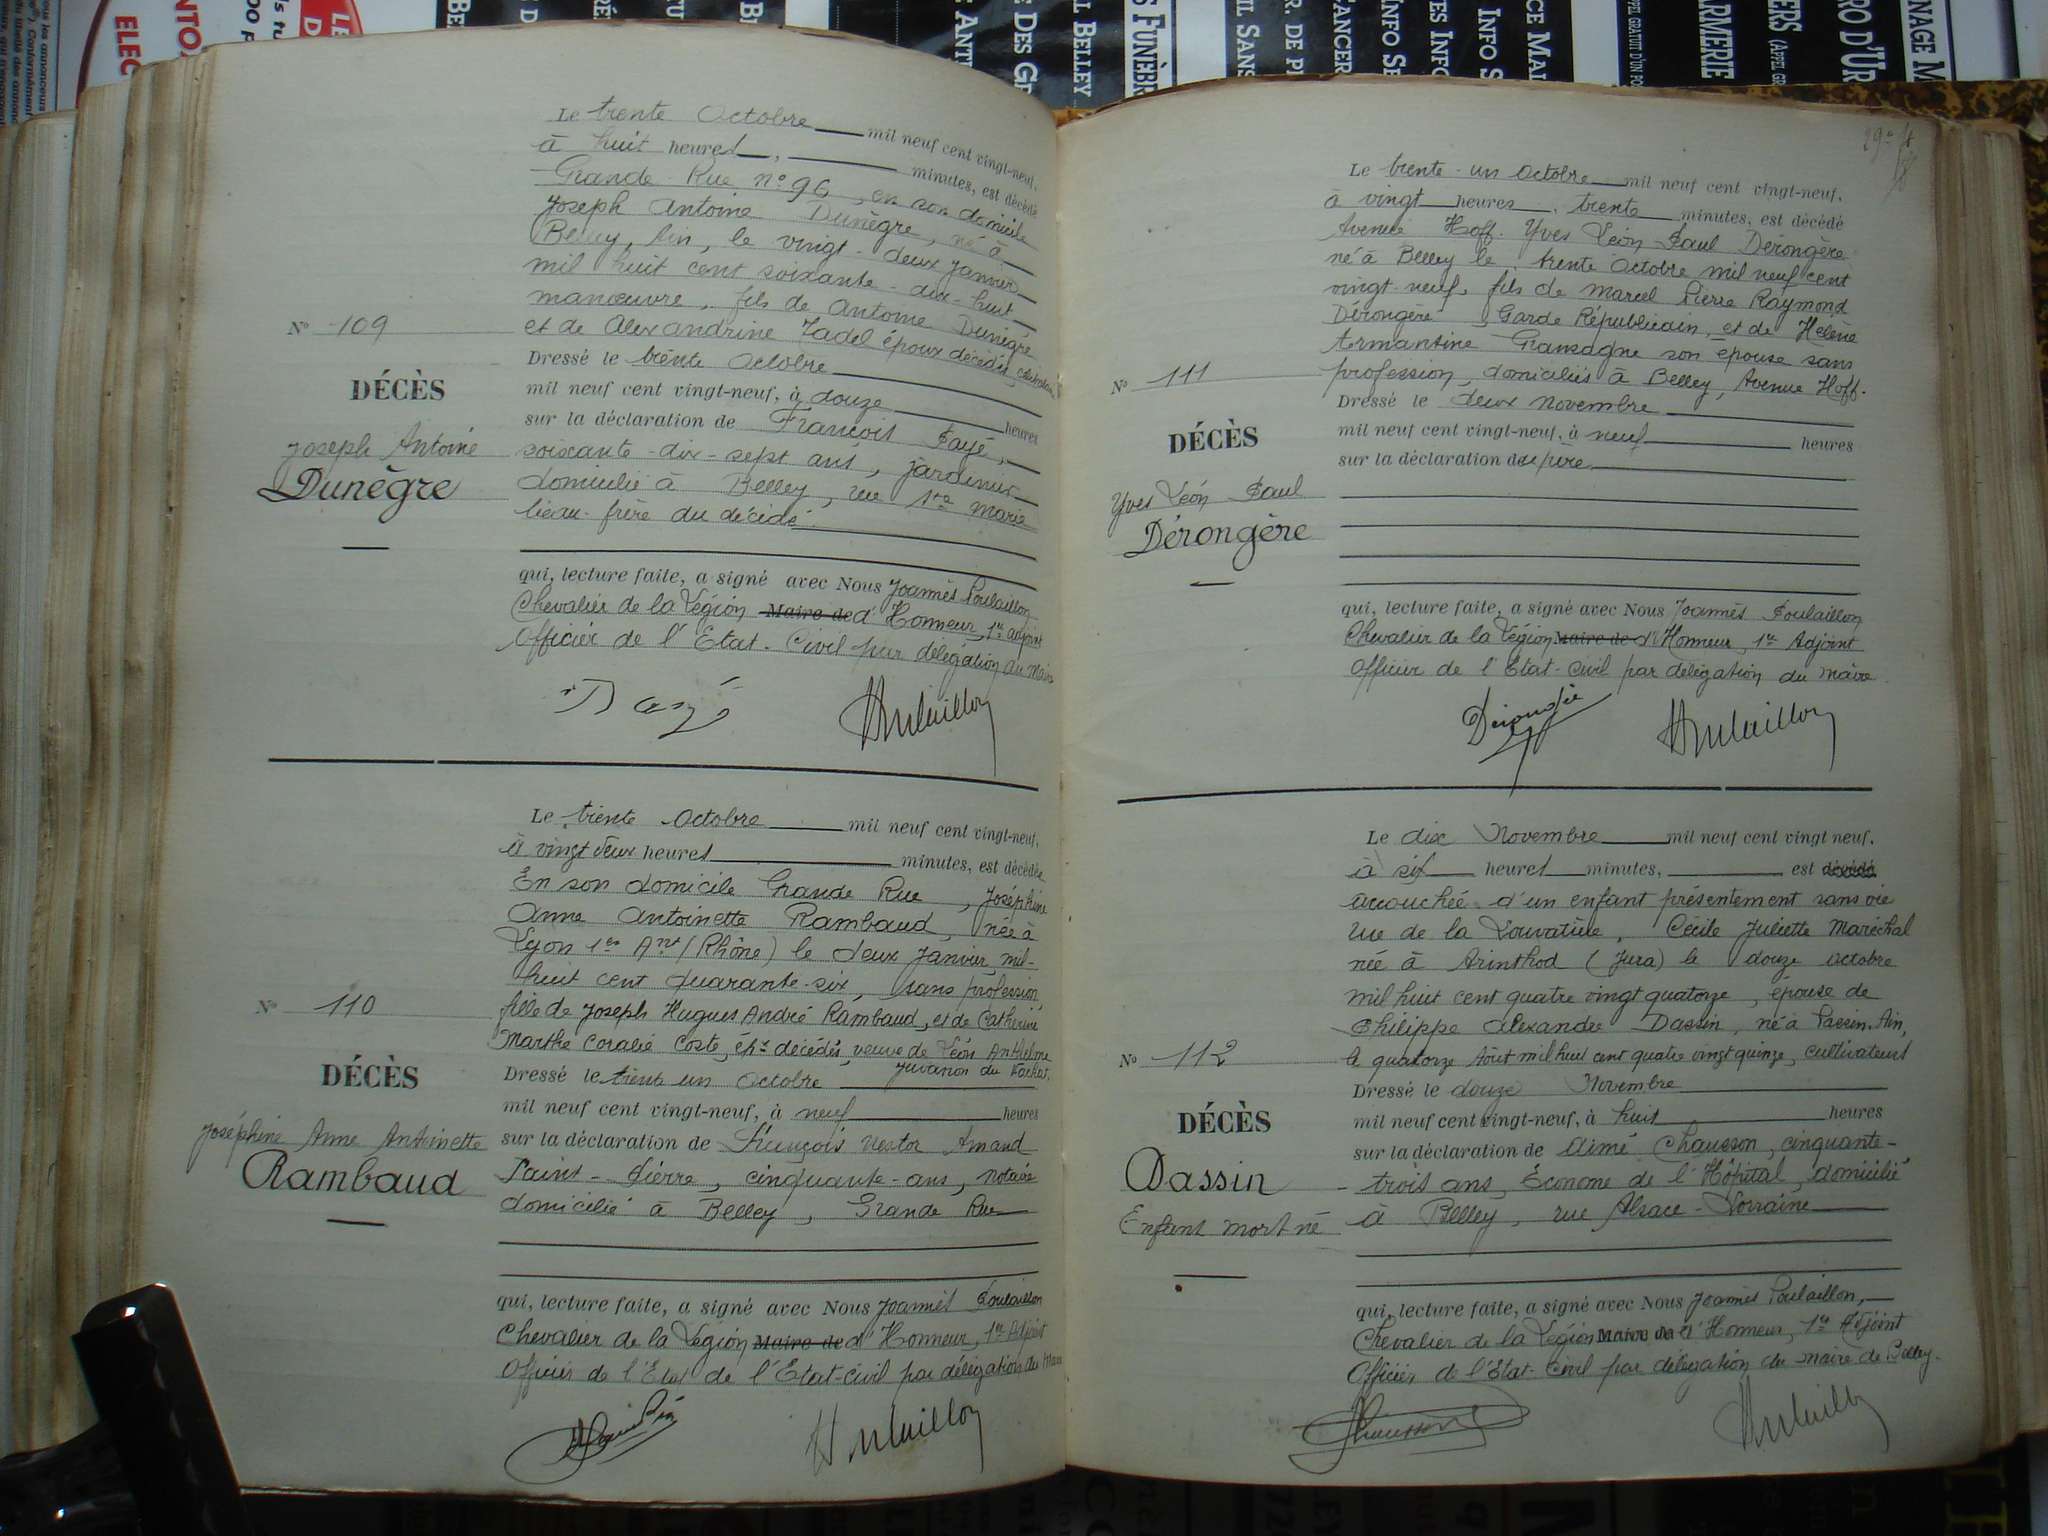 Le trente Octobre mil neuf cent vingt-neuf,
à huit heures, minutes, est décédé
Grande Rue n° 96, en son domicile
Joseph Antoine Dunègre, né à
Belley, Ain, le vingt-deux Janvier
mil huit cent soixante-dix-huit
manœuvre, fils de Antoine Dunègre
et de Alexandrine Tadel époux décédés, célibataire
Dressé le trente Octobre
mil neuf cent vingt-neuf, à douze heures
sur la déclaration de François Payé,
soixante-dix-sept ans, jardinier
domicilié à Belley, rue Ste Marie
beau-frère du décédé.
qui, lecture faite, a signé avec Nous Joannès Poulaillon
Chevalier de la Légion Maire de d'Honneur, 1er adjoint
Officier de l'Etat-Civil par délégation du Maire
N° 109
DÉCÈS
Joseph Antoine
Dunègre
Le trente Octobre mil neuf cent vingt-neuf,
à vingt deux heures minutes, est décédée
En son domicile Grande Rue, Joséphine
Anne Antoinette Rambaud, née à
Lyon 1er Arrt (Rhône) le deux Janvier mil-
huit cent quarante-six, sans profession,
fille de Joseph Hugues André Rambaud, et de Catherine
Marthe Coralie Coste, épx décédés, veuve de Léon Anthelme
Juvanon du Vachat.
Dressé le trente un Octobre
mil neuf cent vingt-neuf, à neuf heures
sur la déclaration de François Nestor Amand
Saint-Pierre, cinquante-ans, notaire
domicilié à Belley, Grande Rue
qui, lecture faite, a signé avec Nous Joannès Poulaillon
Chevalier de la Légion Maire de d'Honneur, 1er Adjoint
Officier de l'Etat de l'Etat-Civil par délégation du Maire
N° 110
DÉCÈS
Joséphine Anne Antoinette
Rambaud
Le trente-un Octobre mil neuf cent vingt-neuf,
à vingt heures, trente minutes, est décédé
Avenue Hoff. Yves Léon Paul Dérongère
né à Belley le, trente Octobre mil neuf cent
vingt-neuf, fils de Marcel Pierre Raymond
Dérongère, Garde Républicain, et de Hélène
Armantine Gransagne son épouse sans
profession, domiciliés à Belley, Avenue Hoff.
Dressé le deux Novembre
mil neuf cent vingt-neuf, à neuf heures
sur la déclaration du père
qui, lecture faite, a signé avec Nous Joannès Poulaillon
Chevalier de la Légion Maire de d'Honneur, 1er Adjoint
Officier de l'Etat-Civil par délégation du Maire
N° 111
DÉCÈS
Yves Léon Paul
Dérongère
Le dix Novembre mil neuf cent vingt neuf,
à six heures minutes, est décédé
accouchée d'un enfant présentement sans vie
rue de la Louvatière, Cécile Juliette Maréchal
née à Arinthod (Jura) le douze Octobre
mil huit cent quatre vingt quatorze, épouse de
Philippe Alexandre Dassin, né à Passin, Ain,
le quatorze Août mil huit cent quatre vingt quinze, cultivateurs
Dressé le douze Novembre
mil neuf cent vingt-neuf, à huit heures
sur la déclaration de Aimé Chausson, cinquante-
trois ans, Économe de l'Hôpital, domicilié
à Belley, rue Alsace-Lorraine
qui, lecture faite, a signé avec Nous Joannès Poulaillon,
Chevalier de la Légion Maire de d'Honneur, 1er Adjoint
Officier de l'Etat-Civil par délégation du maire de Belley.
N° 112
DÉCÈS
Dassin
Enfant mort né